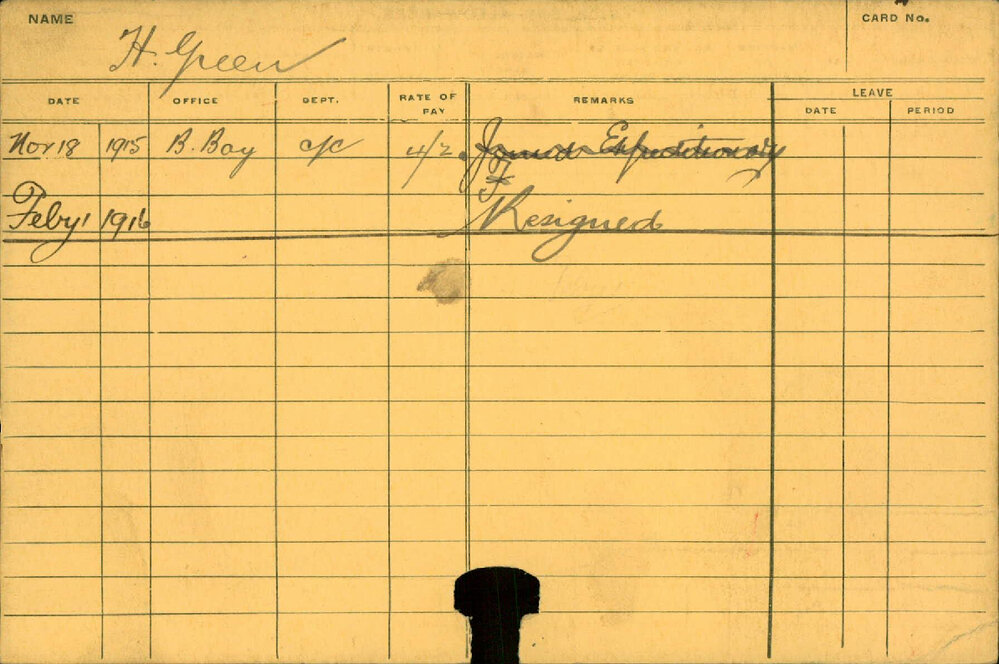 NAME
CARD No.
H. Green
DATE OFFICE DEPT. RATE OF PAY REMARKS LEAVE
DATE PERIOD
Nov 18 1915 B. Bay c/c 4/2 Joined Expeditionary
F
Feby 1 1916 Resigned